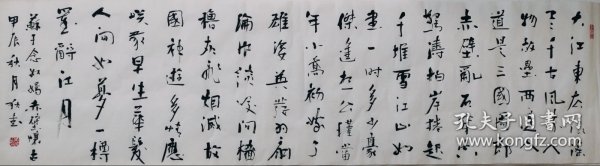 大江東去浪淘
尽千古風流人
物故壘西邊人
道是三國周郎
赤壁亂石穿空
驚濤拍岸捲起
千堆雪江山如
畫一時多少豪
傑遙想公瑾當
年小喬初嫁了
雄姿英發羽扇
綸巾談笑間檣
櫓灰飛煙滅故
國神遊多情應
笑我早生華髮
人間如夢一樽
還酹江月
蘇子念奴嬌赤壁懷古
甲辰秋月
孔夫子旧书网